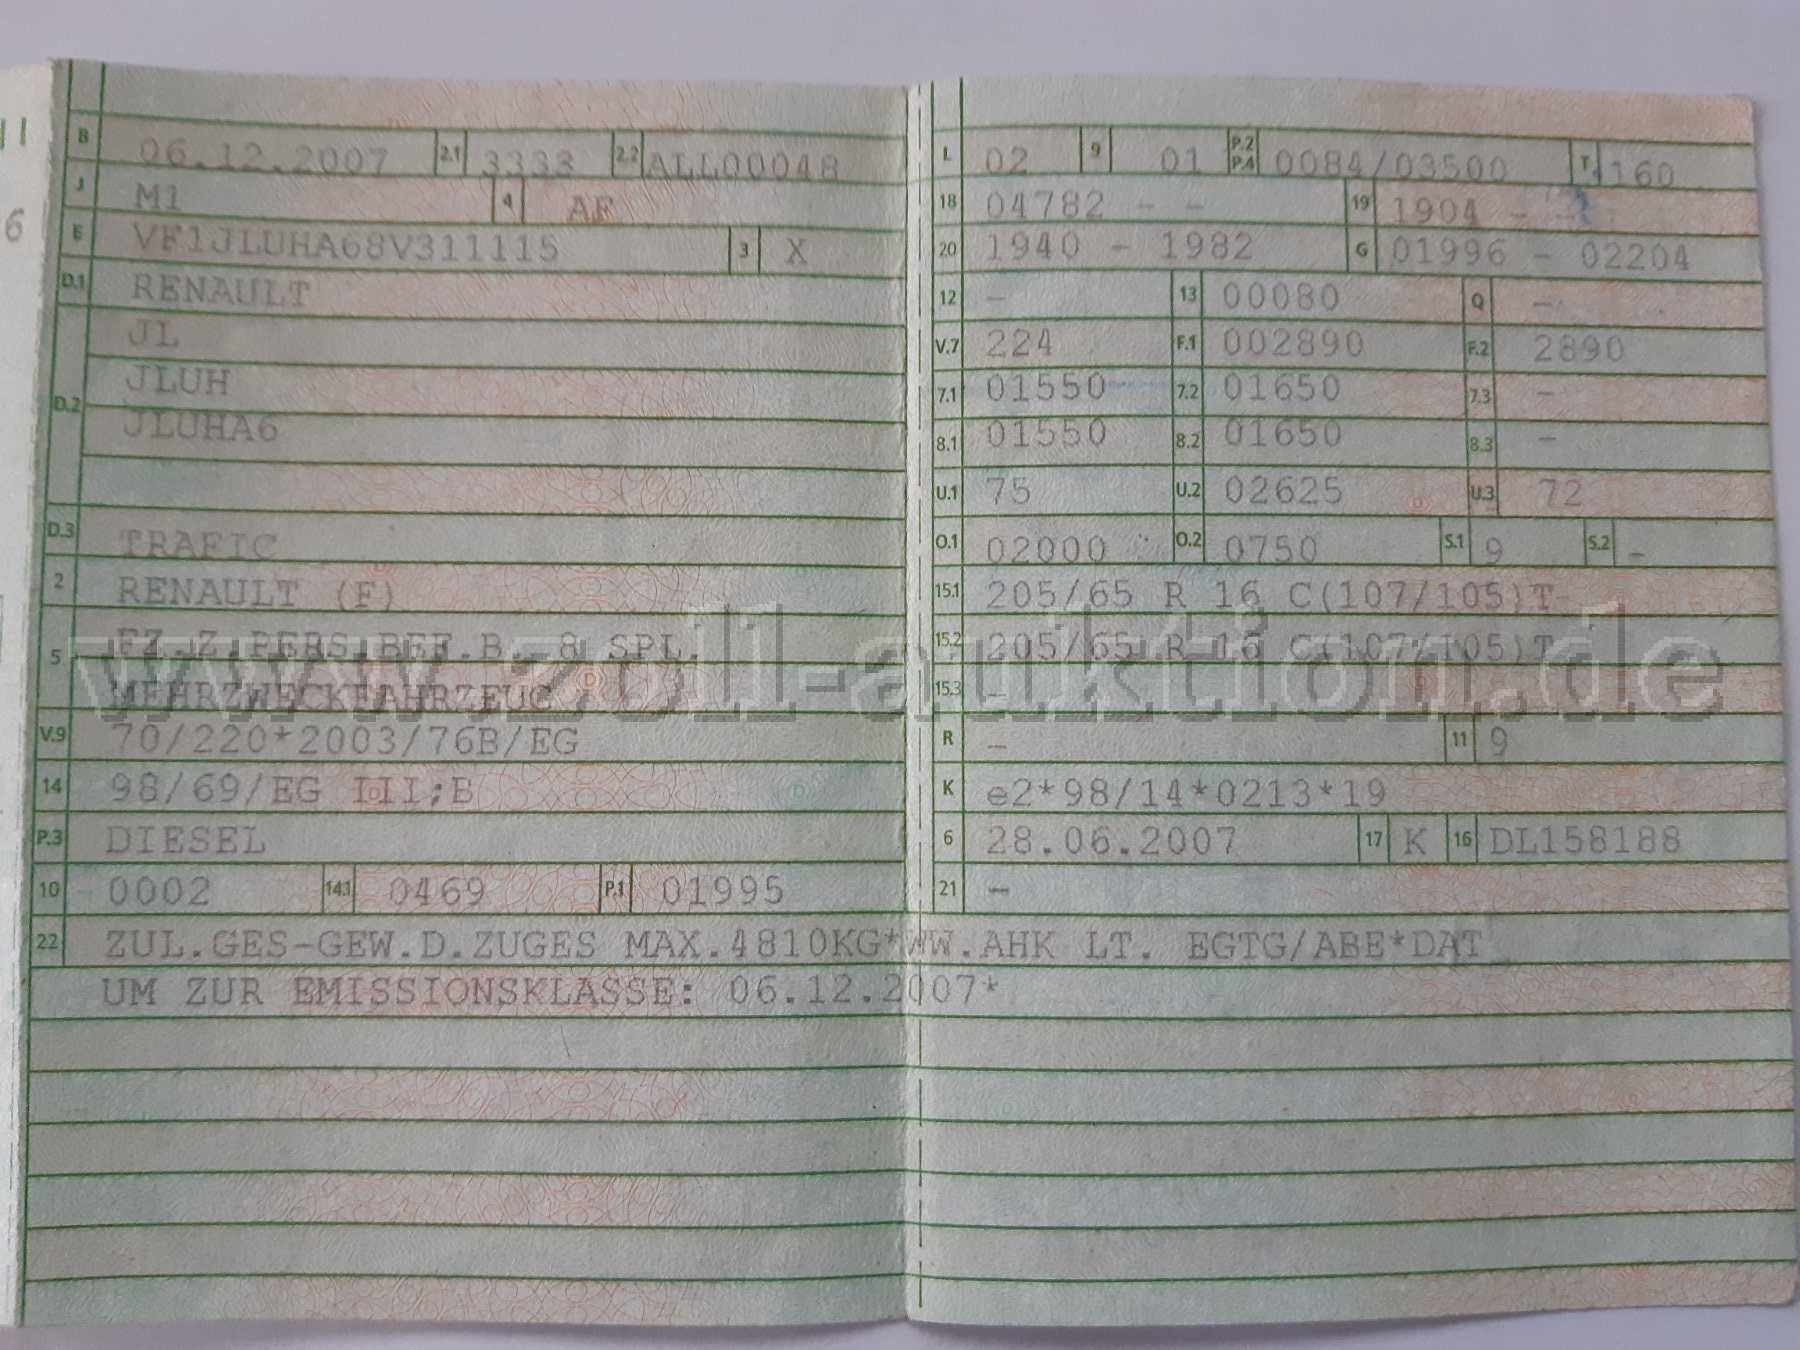 B 06.12.2007 2.1 3333 2.2 ALL00048
J M1 4 AF
6
E VF1JLUHA68V311115 3 X
D.1 RENAULT
D.2 JL
JLUH
JLUHA6
D.3 TRAFIC
2 RENAULT (F)
5 FZ.Z.PERS.BEF.B. 8 SPL.
MEHRZWECKFAHRZEUG
V.9 70/220*2003/76B/EG
14 98/69/EG III;B
P.3 DIESEL
10 0002 14.1 0469 P.1 01995
L 02 9 01 P.2 P.4 0084/03500 T 160
18 04782 - - 19 1904 - -
20 1940 - 1982 G 01996 - 02204
12 - 13 00080 Q -
V.7 224 F.1 002890 F.2 2890
7.1 01550 7.2 01650 7.3 -
8.1 01550 8.2 01650 8.3 -
U.1 75 U.2 02625 U.3 72
O.1 02000 O.2 0750 S.1 9 S.2 -
15.1 205/65 R 16 C(107/105)T
15.2 205/65 R 16 C(107/105)T
15.3 -
R - 11 9
K e2*98/14*0213*19
6 28.06.2007 17 K 16 DL158188
21 -
22 ZUL.GES-GEW.D.ZUGES MAX.4810KG*WW.AHK LT. EGTG/ABE*DAT
UM ZUR EMISSIONSKLASSE: 06.12.2007*
www.zoll-auktion.de